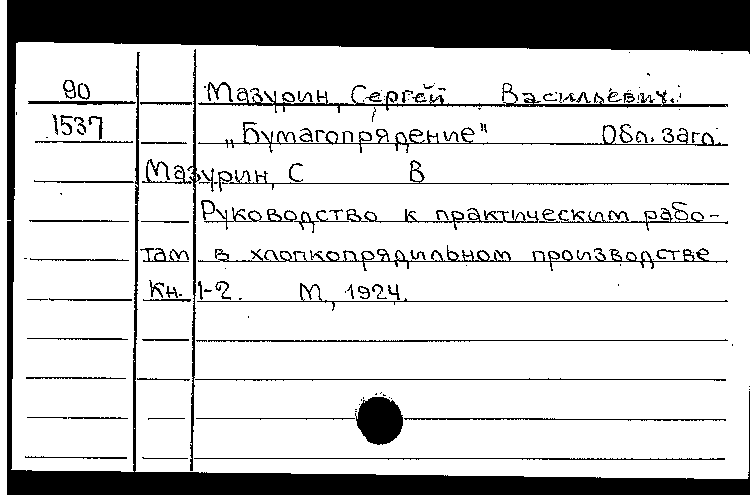 90 Мазурин, Сергей Васильевич.
1537 „Бумагопрядение" Обл. загл.
Мазурин, С В
Руководство к практическим рабо-
там в хлопкопрядильном производстве
Кн. 1-2. М., 1924.